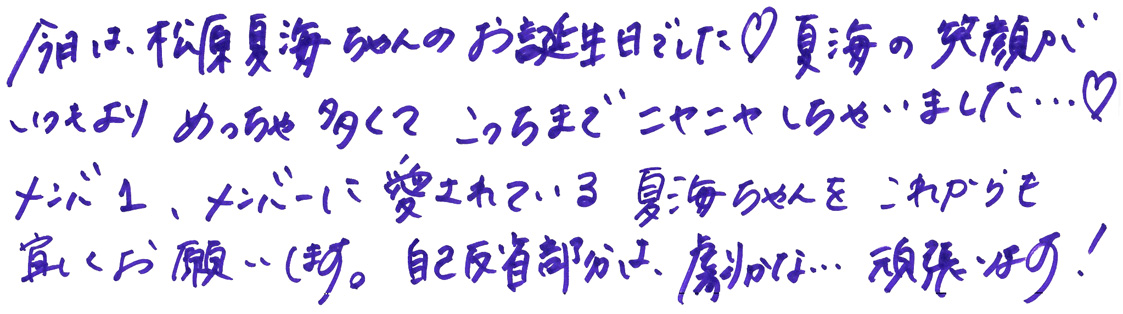 今日は、松原夏海ちゃんのお誕生日でした♡夏海の笑顔が
いつもよりめっちゃ多くてこっちまでニヤニヤしちゃいました…♡
メンバ1、メンバーに愛されている夏海ちゃんをこれからも
宜しくお願いします。自己反省部分は、劇かな…頑張います!